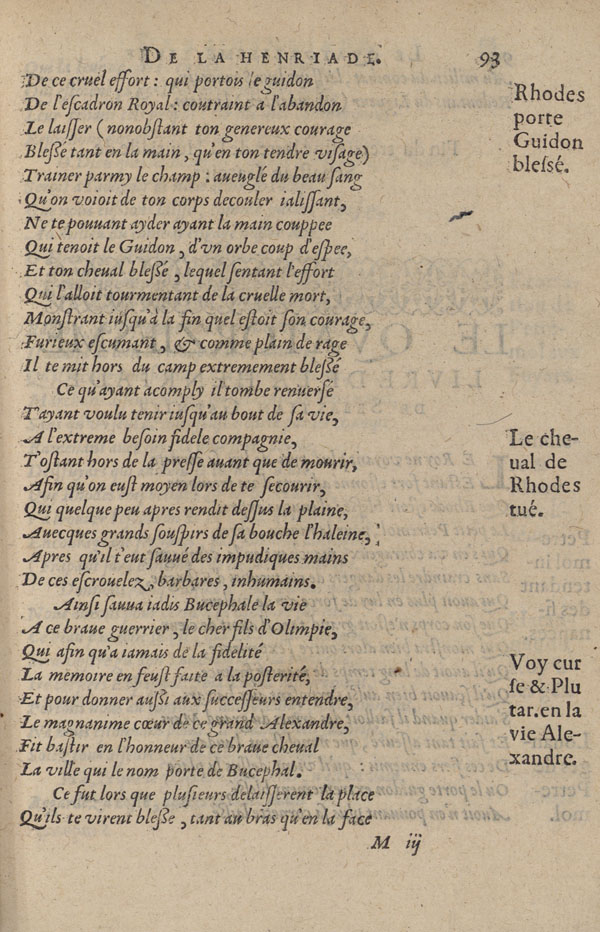 DE LA HENRIADE. 93
De ce cruel effort : qui portois le guidon
De l'eſcadron Royal : coutraint a l'abandon
Le laiſſer ( nonobſtant ton genereux courage
Bleßé tant en la main, qu'en ton tendre viſage)
Trainer parmy le champ : aueuglé du beau ſang
Qu'on voioit de ton corps decouler ialiſſant,
Ne te pouuant ayder ayant la main couppee
Qui tenoit le Guidon, d'vn orbe coup d'eſpee,
Et ton cheval bleßé, lequel ſentant l'effort
Qui l'alloit tourmentant de la cruelle mort,
Monſtrant iuſqu'à la fin quel eſtoit ſon courage,
Furieux eſcumant, & comme plain de rage
Il te mit hors du camp extremement bleßé
Ce qu'ayant acomply il tombe renuerſé
T'ayant voulu tenir iuſqu'au bout de ſa vie,
A l'extreme beſoin fidele compagnie,
T'oſtant hors de la preſſe auant que de mourir,
Afin qu'on euſt moyen lors de te ſecourir,
Qui quelque peu apres rendit deſſus la plaine,
Auecques grands ſouſpirs de ſa bouche l'haleine,
Apres qu'il t'eut ſauué des impudiques mains
De ces eſcrouelez, barbares, inhumains.
Ainſi ſauua iadis Bucephale la vie
A ce braue guerrier, le cher fils d'Olimpie,
Qui afin qu'a iamais de la fidelité
La memoire en feuſt faite a la poſterité,
Et pour donner außi aux ſucceſſeurs entendre,
Le magnanime cœur de ce grand Alexandre,
Fit baſtir en l'honneur de ce braue cheual
La ville qui le nom porte de Bucephal.
Ce fut lors que pluſieurs delaiſſerent la place
Qu'ils te virent bleßé, tant au bras qu'en la face
M iij
Rhodes
porte
Guidon
bleſſé.
Le che-
ual de
Rhodes
tué.
Voy cur
ſe & Plu
tar. en la
vie Ale-
xandre.